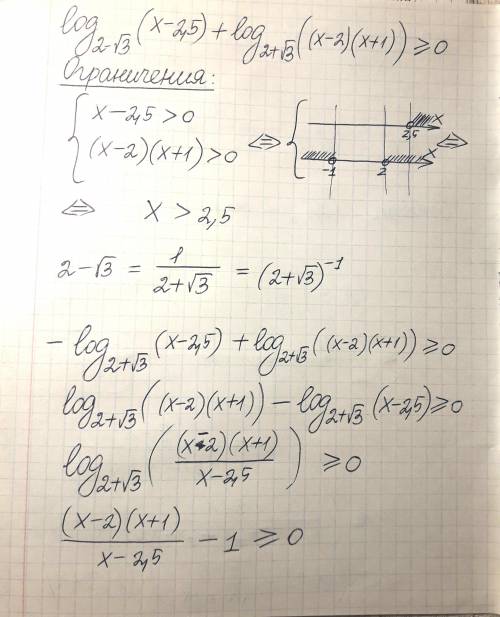 log_{2-√3} (x-2,5) + log_{2+√3} ((x-2)(x+1)) ≥ 0
Ограничения:
{ x-2,5 > 0
(x-2)(x+1) > 0 ⇔ { 2,5 x
-1 2 x ⇔
⇔ x > 2,5
2-√3 = 1/(2+√3) = (2+√3)^{-1}
- log_{2+√3} (x-2,5) + log_{2+√3} ((x-2)(x+1)) ≥ 0
log_{2+√3} ((x-2)(x+1)) - log_{2+√3} (x-2,5) ≥ 0
log_{2+√3} ( (x-2)(x+1) / (x-2,5) ) ≥ 0
(x-2)(x+1) / (x-2,5) - 1 ≥ 0